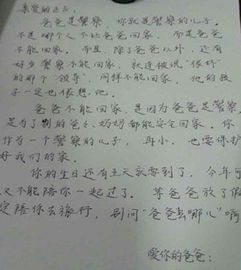 亲爱的
爸爸是警察,你就是警察的儿子。
不是哪个人不让爸爸回家,而是爸爸
不能回家。而且,除了爸爸以外,还有
好多警察不能回家,就连被说“很坏”
的那个“领导”,同样不能回家,他的孩
子一定也很想他。
爸爸不能回家,是因为爸爸是警察
是为了别的爸爸妈妈都能安全回家。你
作为一个警察的儿子,再小,也要你护
好我们的家。
你的生日还有五天就要到了,今年
又不能陪你一起过了。等爸爸放了假
定陪你去旅行,别问“爸爸去哪儿”啊
爱你的爸爸: